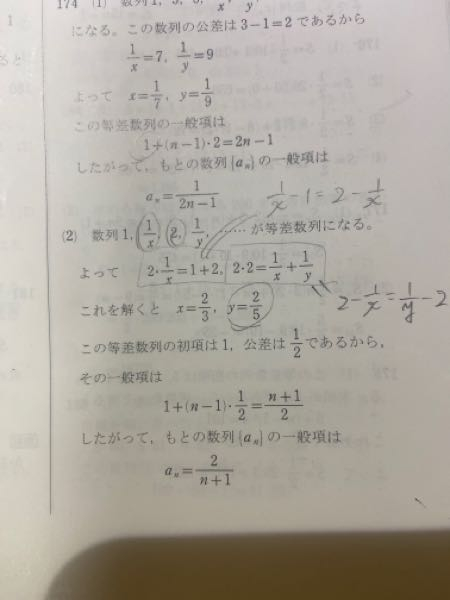 174 (1) 数列1, 3, 5, 1/x, 1/y
になる。この数列の公差は 3−1=2 であるから
1/x=7, 1/y=9
よって x=1/7, y=1/9
この等差数列の一般項は
1+(n−1)·2=2n−1
したがって, もとの数列{aₙ}の一般項は
aₙ=1/(2n−1)
1/x−1=2−1/x
(2) 数列1, 1/x, 2, 1/y, …… が等差数列になる。
よって 2·1/x=1+2, 2·2=1/x+1/y
2−1/x=1/y−2
これを解くと x=2/3, y=2/5
この等差数列の初項は 1, 公差は 1/2 であるから,
その一般項は
1+(n−1)·1/2=(n+1)/2
したがって, もとの数列{aₙ}の一般項は
aₙ=2/(n+1)